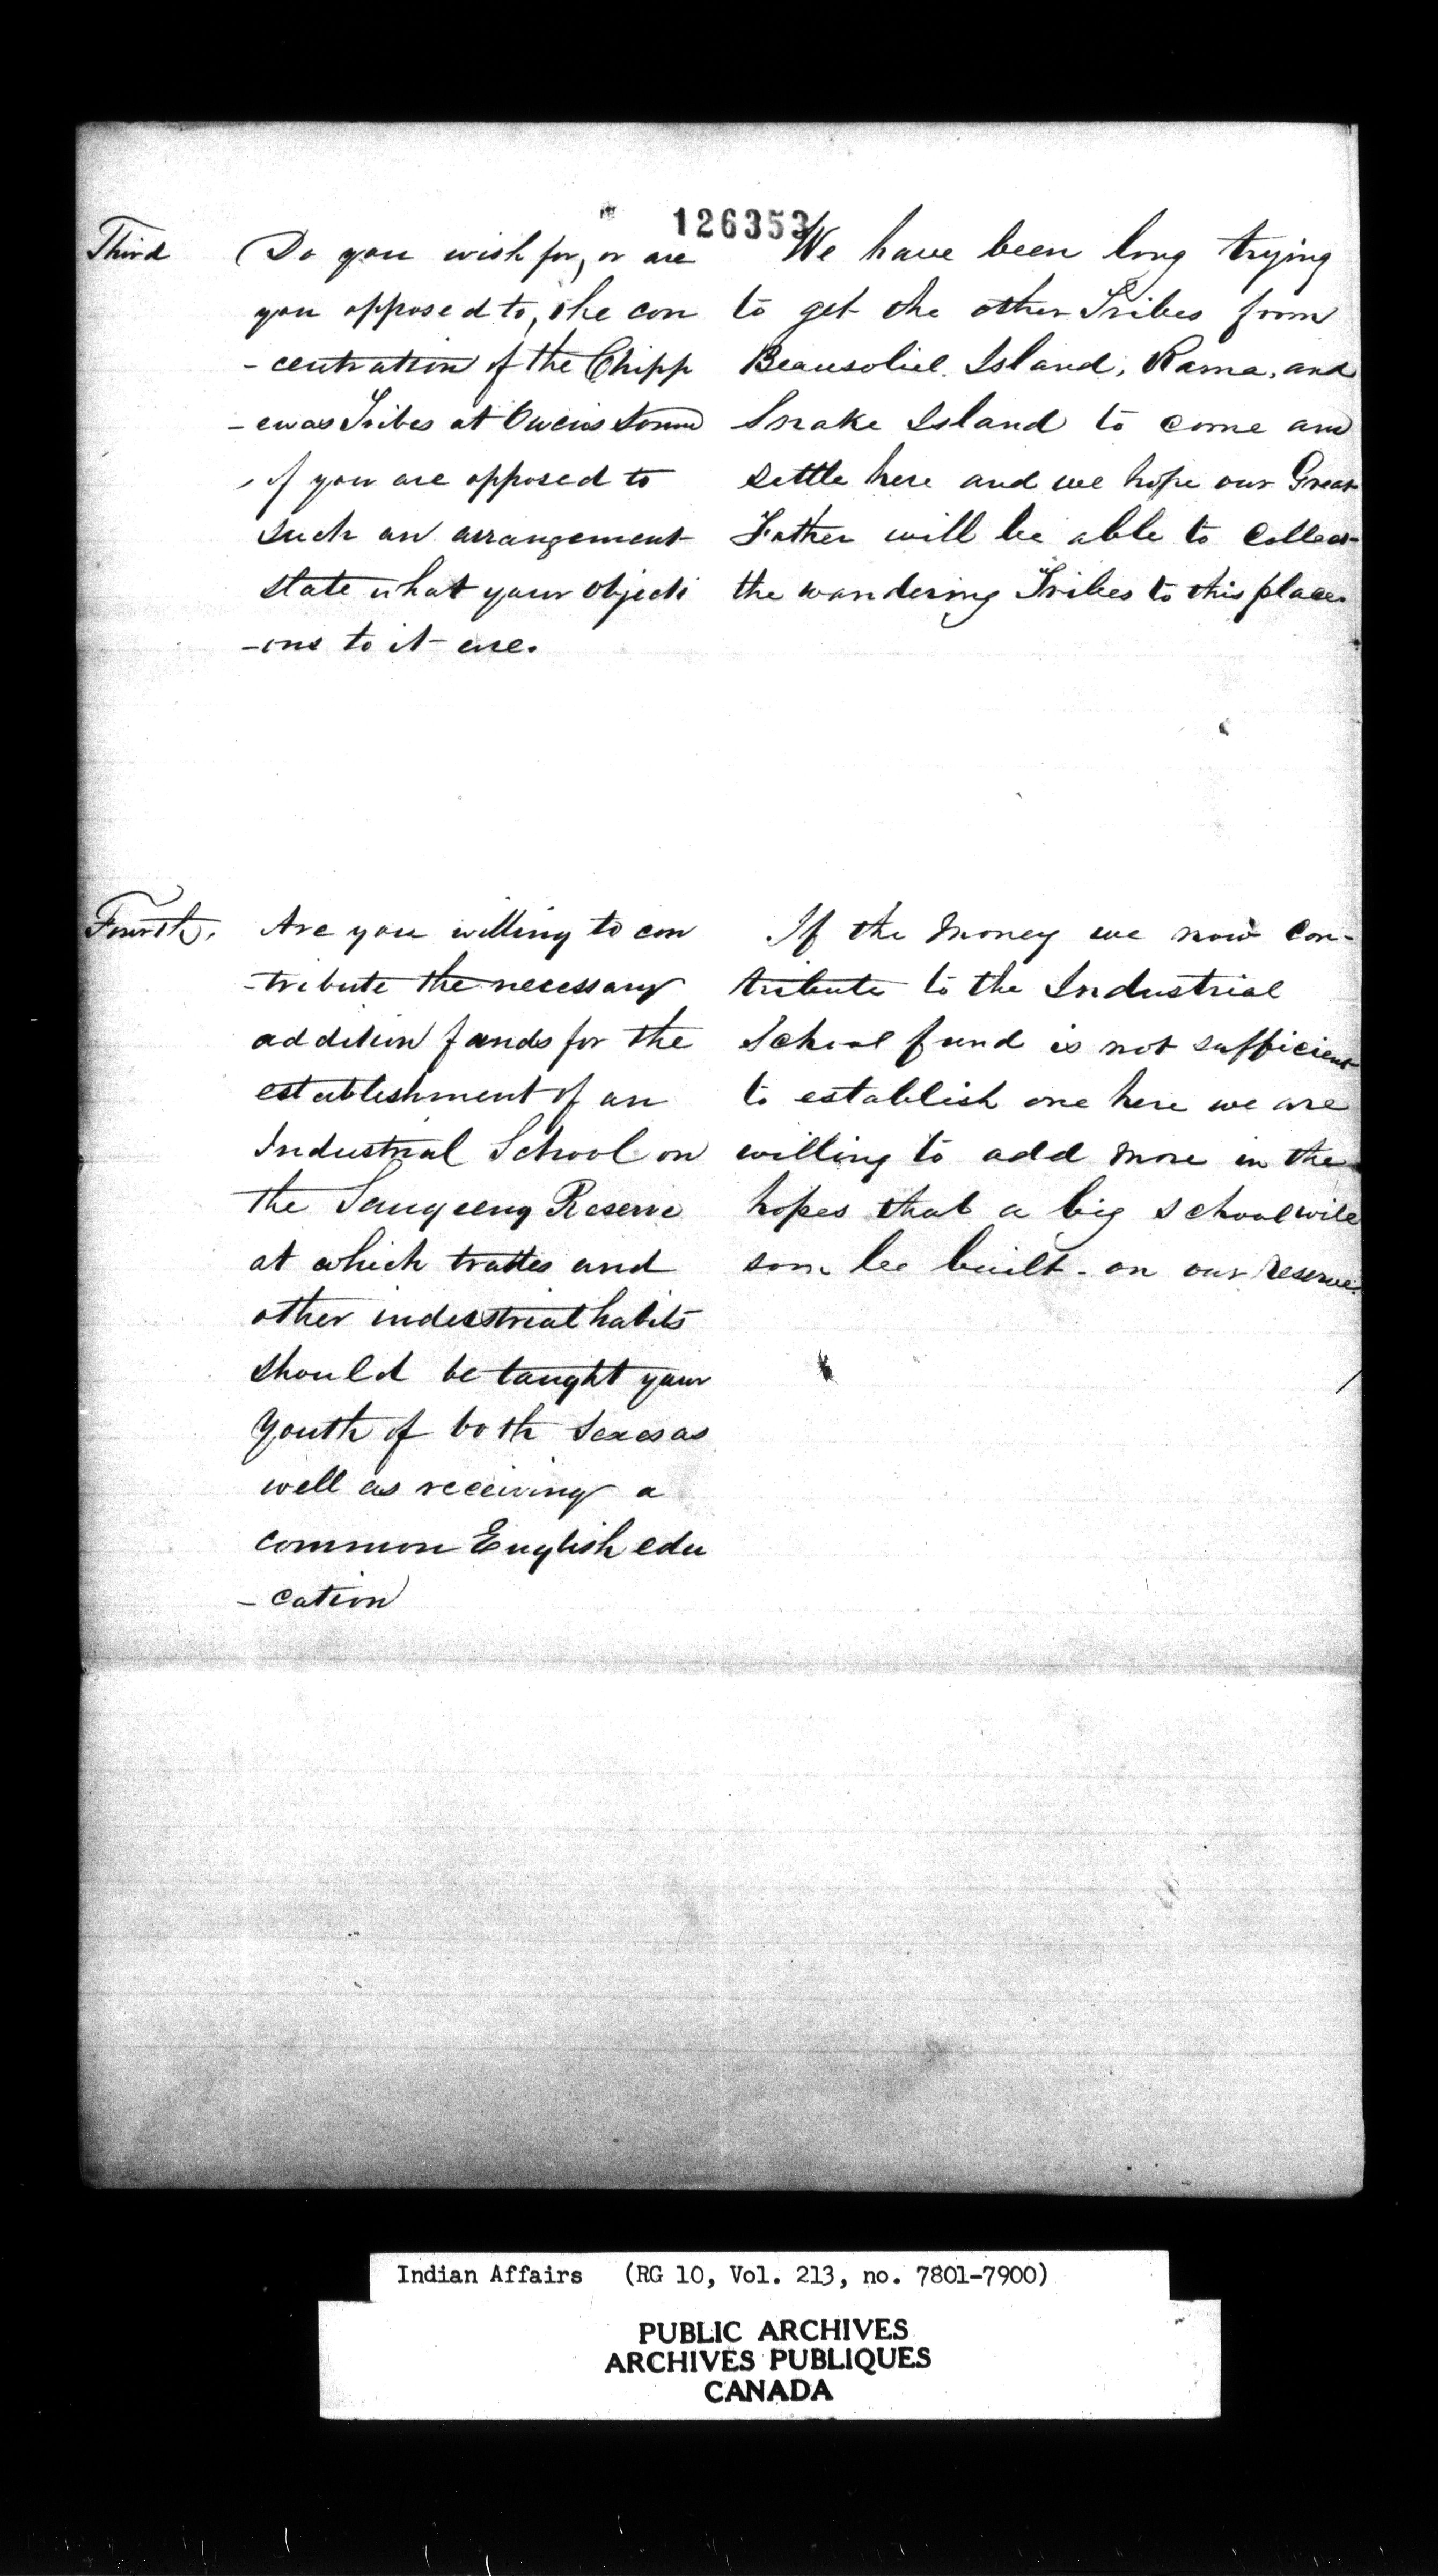 126353
Third
Do you wish for, or are
you opposed to, the con
-centration of the Chipp
-ewas Tribes at Owens Sound
, if you are opposed to
such an arrangement
state what your objecti
-ons to it are.
We have been long trying
to get the other Tribes from
Beausoliel Island, Rama, and
Snake Island to come and
settle here and we hope our Great
Father will be able to collect
the wandering Tribes to this place.
Fourth.
Are you willing to con
-tribute the necessary
addition funds for the
establishment of an
Industrial School on
the Saugeeng Reserve
at which trades and
other industrial habits
should be taught your
Youth of both Sexes as
well as receiving a
common English edu
-cation
If the money we now con-
tribute to the Industrial
School fund is not sufficient
to establish one here we are
willing to add more in the
hopes that a big school will
soon be built - on our reserve.
Indian Affairs (RG 10, Vol. 213, no. 7801-7900)
PUBLIC ARCHIVES
ARCHIVES PUBLIQUES
CANADA